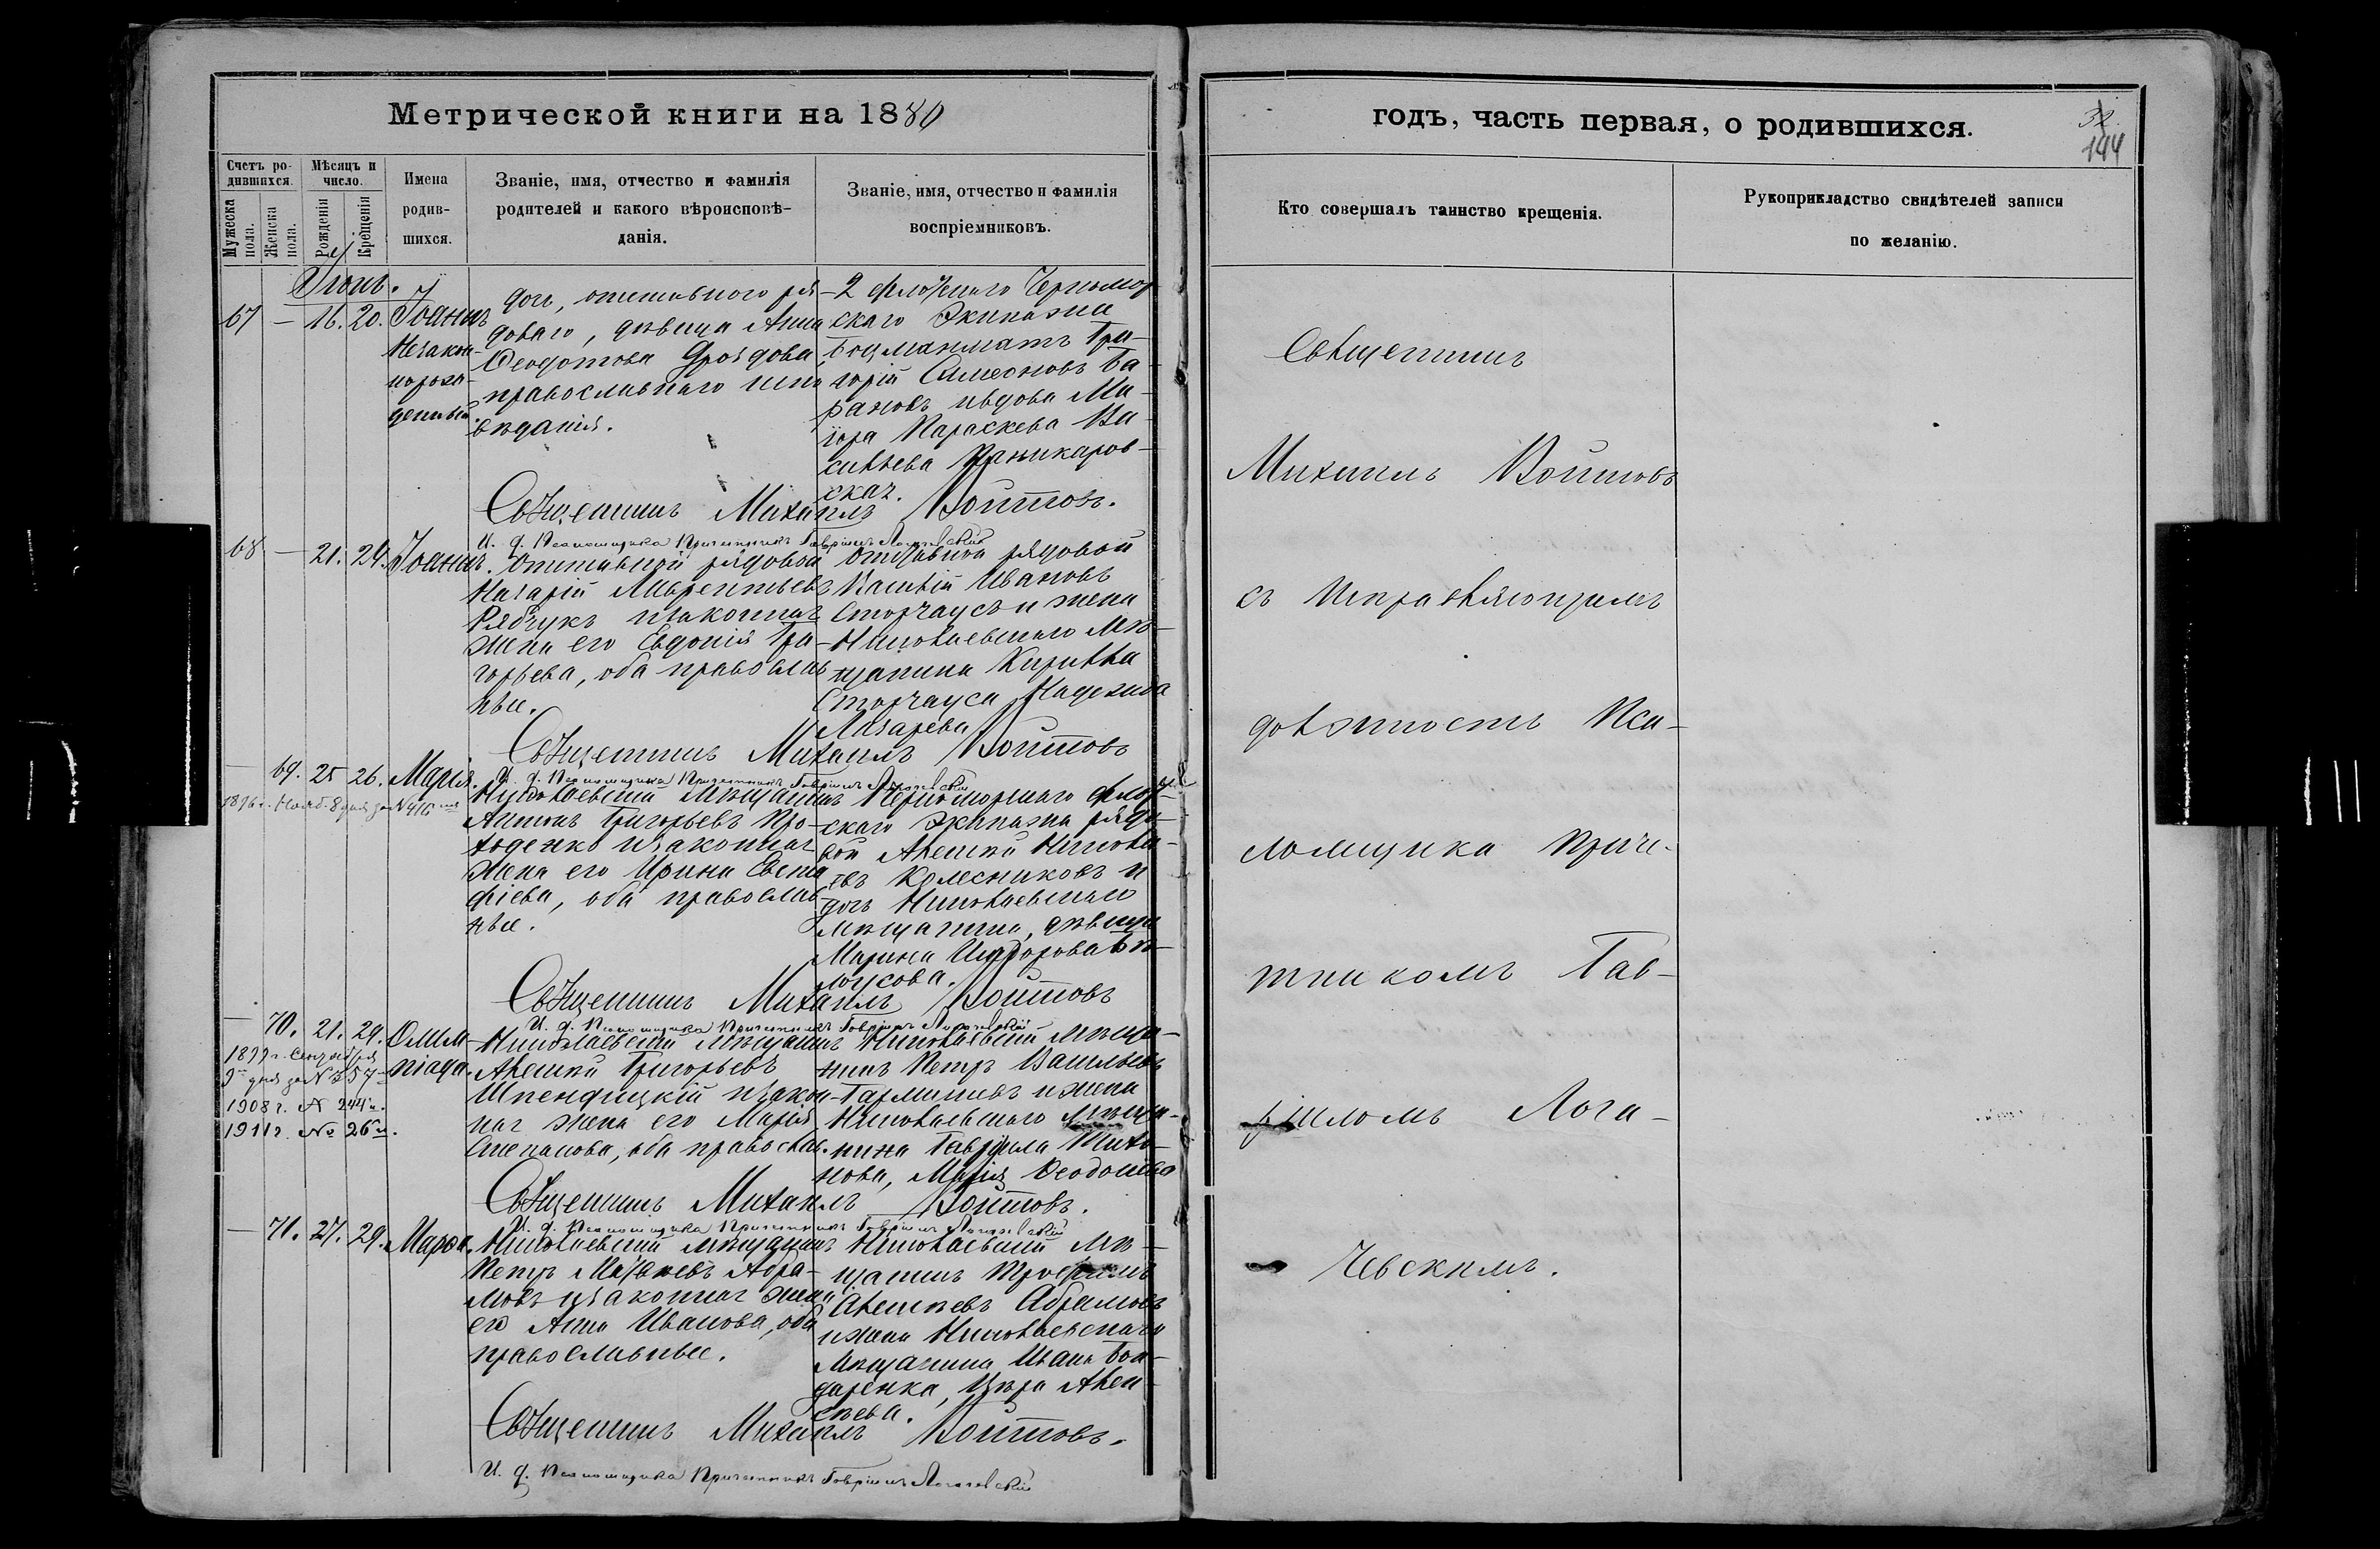 Метрической книги на 1880
Счетъ ро-
дившихся.
Мужеска пола.
Женска пола.
Мѣсяцъ и
число.
Рожденія
Крещенія
Имена
родив-
шихся.
Званіе, имя, отчество и фамилія
родителей и какого вѣроисповѣ-
данія.
Званіе, имя, отчество и фамилія
воспріемниковъ.
Іюнь.
67 — 16. 20. Іоаннъ
Незакон-
норож-
денный.
дочь, отставного ря-
доваго, дѣвица Анна
Ѳеодотова Дроздова,
православнаго испо
вѣданія.
2 флотскаго Черномор
скаго Экипажа
Боцманматъ Гри-
горій Симеоновъ Ба-
рановъ и вдова Ма-
іора Параскева Ва-
сильева
ская.
Священникъ Михаилъ Войтовъ.
И. д. Псаломщика Причетникъ Гавріилъ Логачевскій
68 — 21. 24. Іоаннъ.
Отставной рядовой
Назарій Лаврентьевъ
Рябчукъ и законная
жена его Евдокія Гри-
горьева, оба православ
ные.
Отставной рядовой
Василій Ивановъ
Сторчаусъ и жена
Николаевскаго мѣ-
щанина Кирилла
Сторчауса Надежда
Лазарева
Священникъ Михаилъ Войтовъ
И. д. Псаломщика Причетникъ Гавріилъ Логачевскій
— 69. 25 26. Марія.
1896 г. Нояб. 8 дня за № 416
Николаевскій мѣщанинъ
Антонъ Григорьевъ Про-
ходенко и законная
жена его Ирина
фіева, оба православ
ные.
Черноморскаго флот
скаго Экипажа рядо-
вой Алексѣй Никола-
евъ Колесниковъ и
дочь Николаевскаго
мѣщанина, дѣвица
Марина Исидорова Бѣ-
лоусова.
Священникъ Михаилъ Войтовъ
И. д. Псаломщика Причетникъ Гавріилъ Логачевскій
— 70. 21. 29. Олим-
піада.
1899 г. Сентября
9 дня за № 357
1908 г. № 244
1911 г. № 26
Николаевскій мѣщанинъ
Алексѣй Григорьевъ
Шпендицкій и закон-
ная жена его Марія
Степанова, оба православ.
Николаевскій мѣща-
нинъ Петръ Васильевъ
и жена
Николаевскаго мѣща-
нина Гавріила Тихо-
нова, Марія Ѳеодосіева
Священникъ Михаилъ Войтовъ.
И. д. Псаломщика Причетникъ Гавріилъ Логачевскій
— 71. 27. 29. Марѳа.
Николаевскій мѣщанинъ
Петръ Матѳеевъ Абра-
мовъ и законная жена
его Анна Иванова, оба
православные.
Николаевскій мѣ-
щанинъ Трофимъ
Алексѣевъ Абрамовъ
и жена Николаевскаго
мѣщанина Ивана Бон-
даренка, Вѣра Алек-
сѣева.
Священникъ Михаилъ Войтовъ.
И. д. Псаломщика Причетникъ Гавріилъ Логачевскій
годъ, часть первая, о родившихся.
32.
144
Кто совершалъ таинство крещенія.
Рукоприкладство свидѣтелей записи
по желанію.
Священникъ
Михаилъ Войтовъ
съ Исправляющимъ
должность Пса-
ломщика Приче-
тникомъ Гав-
ріиломъ Лога-
чевскимъ.